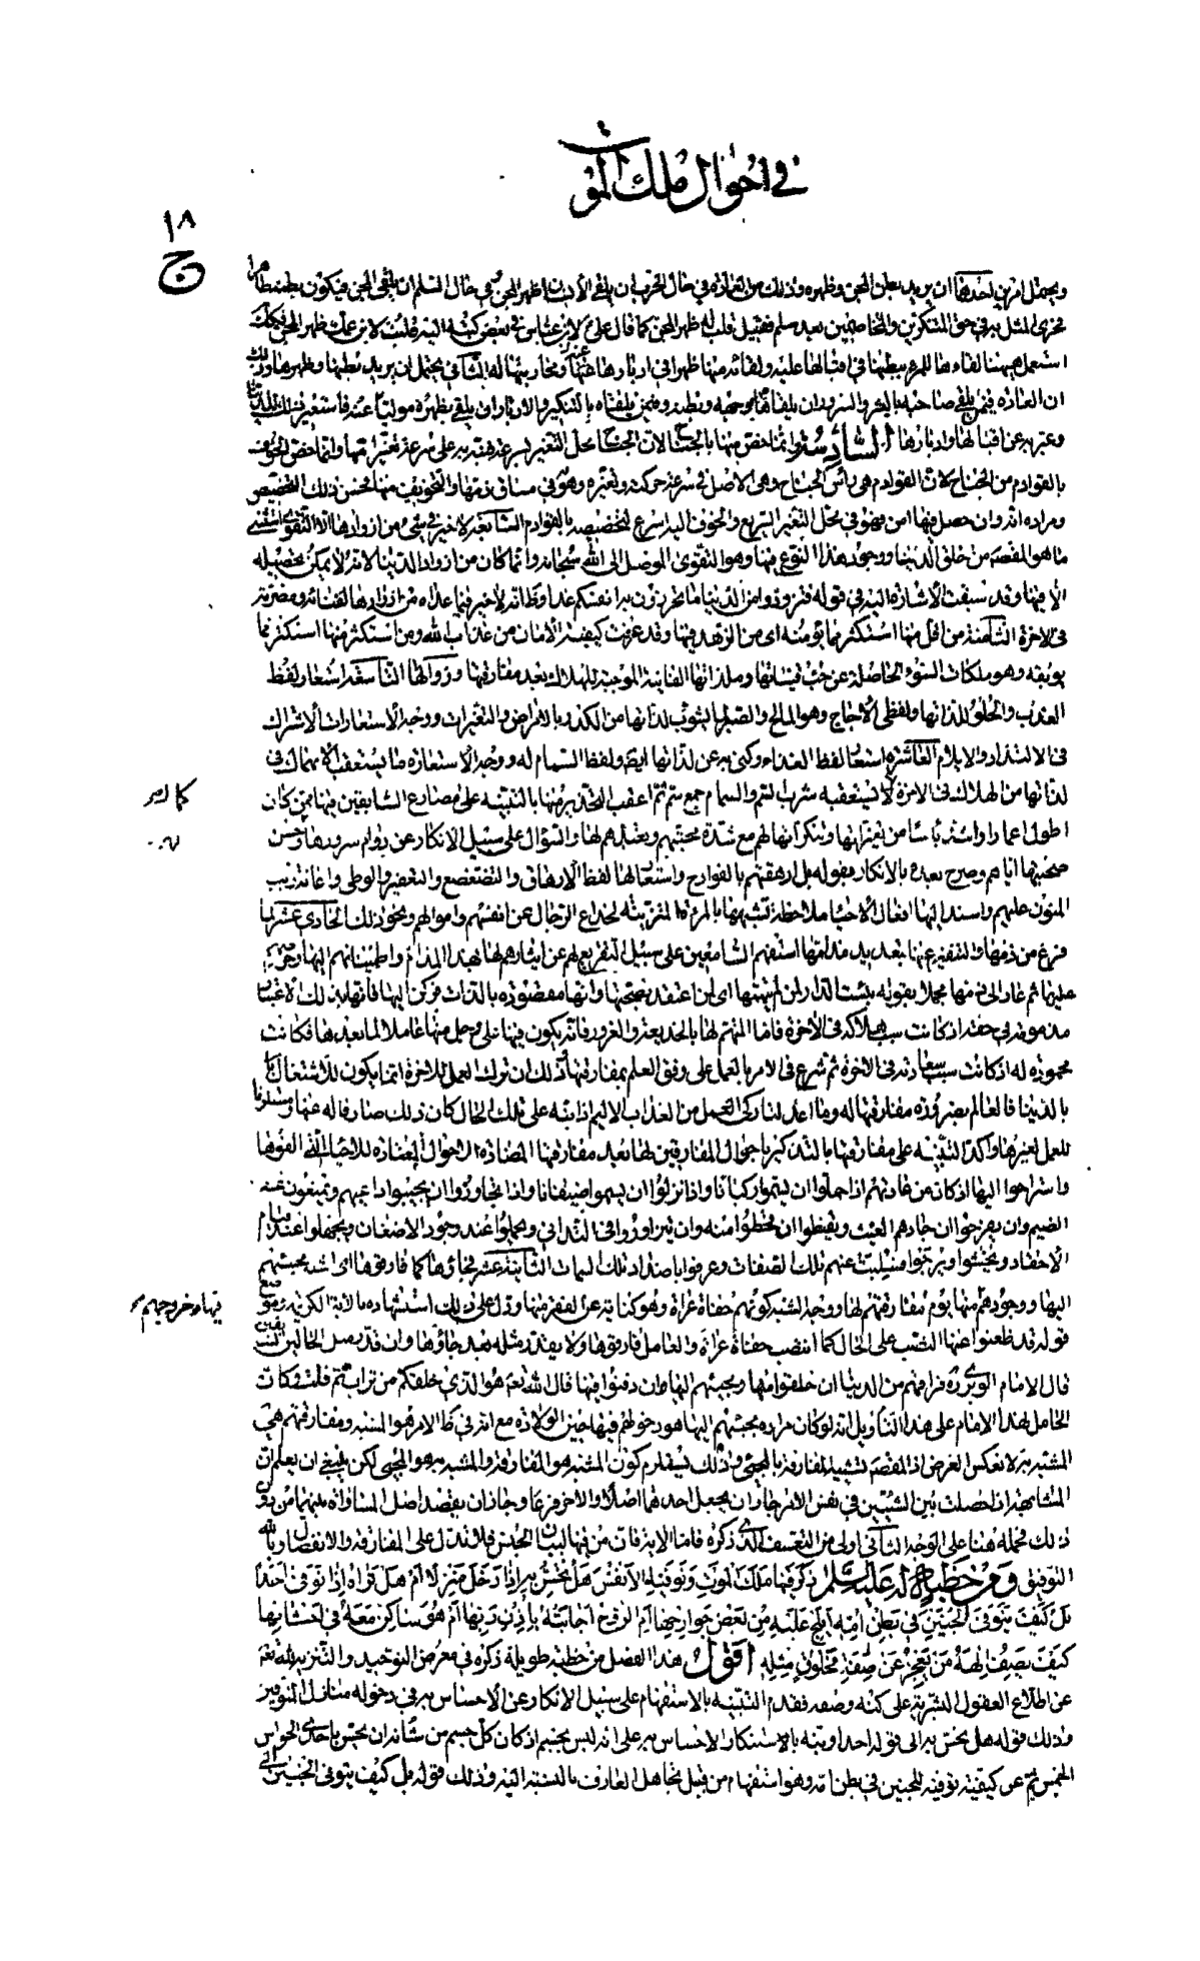 في احوال ملك الموت
١٨
ج
ويحتمل امرين احدهما ان يريد بطن المجن وظهره وذلك من العادة في حال الحرب ان يلقى ظهر المجن وفي حال السلم ان يلقى المجن فيكون بطنه ظاهرا
فجرى المثل به في حق المتنكرين والمخاصمين بعد سلم فقيل قلب له ظهر المجن كما قال علي لابن عباس في بعض كتبه اليه قلبت لابن عمك ظهر المجن
استعمل ههنا لقاءها للمرء ببطنها في اقبالها عليه ولقائه منها ظهرا في ادبارها عنه ومحاربتها له الثاني يحتمل ان يريد بطنها وظهرها وذلك
ان العادة فيمن يلقى صاحبه بالبشر والسرور ان يلقاه بوجهه وبطنه وفيمن يلقاه بالتنكير والادبار ان يلقى بظهره موليا عنه فاستعير ذلك للدنيا
وعبر به عن اقبالها وادبارها السادسة وانما خص منها بالجناح لان الجناح محل التغير بسرعة فنبه به على سرعة تغيراتها وانما خص الخوف
بالقوادم من الجناح لان القوادم هي رأس الجناح وهي الاصل في سرعة حركته وتغيره وهو في مساق ذمها والتخويف منها فحسن ذلك التخصيص
ومراده انه وان حصل فيها امن فهو في محل التغير السريع والخوف اليه اسرع لتخصيصه بالقوادم السابعة لا خير في شيء من ازوادها الا التقوى استثنى
ما هو المقصد من خلق الدنيا ووجود هذا النوع فيها وهو التقوى الموصل الى الله سبحانه وانما كان من ازواد الدنيا لانه لا يمكن تحصيله
الا فيها وقد سبقت الاشارة اليه في قوله فتزودوا من الدنيا ما تحرزون به انفسكم غدا وظاهر انه لا خير فيما عداه من ازوادها لفنائه ومضرته
في الاخرة الثامنة من اقل منها استكثر مما يؤمنه اى من الزهد فيها وقد عرفت كيفية الامان من عذاب الله ومن استكثر منها استكثر مما
يوبقه وهو ملكات السوء الحاصلة عن حب قيناتها وملذاتها الفانية الموجبة للهلاك بعد مفارقتها وزوالها التاسعة استعار لفظ
العذب والحلو للذاتها ولفظى الاجاج وهو المالح والصبر لما يشوب لذاتها من الكدر بالامراض والتغيرات ووجه الاستعارات الاشتراك
في الالتذاد والايلام العاشرة استعار لفظ الغذاء وكنى به عن لذاتها ايضا ولفظ السمام له ووجه الاستعارة ما يستعقب الانهماك في
لذاتها من الهلاك في الاخرة كما يستعقبه شرب السم والسمام جمع سم ثم اعقب التحذير منها بالتنبيه على مصارع السابقين فيها ممن كان
اطول اعمارا واشد بأسا من تغيراتها وتنكراتها لهم مع شدة محبتهم وتعبدهم لها والسؤال على سبيل الانكار عن دوام سرورها وحسن
صحبتها اياهم وصرح بعده بالانكار بقوله بل ارهقتهم بالفوادح واستعار لها لفظ الارهاق والتضعضع والتعفير والوطى واعانة ريب
المنون عليهم واسند اليها افعال الاحياء ملاحظة لشبهها بالمرءة المتزينة لخداع الرجال عن انفسهم واموالهم ونحو ذلك الحادى عشر لما
فرغ من ذمها والتنفير عنها بتعديد مذامها استفهم السامعين على سبيل التقريع لهم عن ايثارهم لها بهذه المذام واطمينانهم اليها وحرصهم
عليها ثم عاد الى ذمها مجملا بقوله بئست الدار لمن لم يتهمها اى لمن اعتقد نصحتها وانها مقصودة بالذات فركن اليها فانها بذلك الاعتبار
مذمومة في حقه اذ كانت سبب هلاكه في الاخرة فاما المتهم لها بالخديعة والغرور فانه يكون فيها على وجل منها عاملا لما بعدها فكانت
محمودة له اذ كانت سبب سعادته في الاخرة ثم شرع في الامر بالعمل على وفق العلم بمفارقتها وذلك ان ترك العمل للاخرة انما يكون للاشتغال
بالدنيا فالعالم بضرورة مفارقتها له وما اعد لتاركى العمل من العذاب الاليم اذا نبه على تلك الحال كان ذلك صارفا له عنها ومستلزما
للعمل لغيرها واكد التنبيه على مفارقتها بالتذكير باحوال المفارقين لها بعد مفارقتها المضادة لاحوال المعتادة للاحياء التي الفوها
واستراحوا اليها اذ كان من عادتهم اذا حملوا ان يسموا ركبانا واذا نزلوا ان يسموا ضيفانا واذا تجاوروا ان يجيبوا داعيهم ويمنعون عنه
الضيم وان يفرحوا ان جادهم الغيث ويقنطوا ان قحطوا منه وان يتزاوروا في التداني ويحلموا عند وجود الاضغان ويجهلوا عند قيام
الاحقاد ويخشوا ويرجوا فسلبت عنهم تلك الصفات وعرفوا باضداد تلك السمات الثانية عشر فجاؤها كما فارقوها اى اشبه مجيئهم
اليها ووجودهم منها يوم مفارقتهم لها ووجه الشبه كونهم حفاة عراة وهو كناية عن النفر منها ودل على ذلك استشهاده بالاية الكريمة وموضع
قوله قد ظعنوا عنها النصب على الحال كما انتصب حفاة عراة والعامل فارقوها ولا يقدر مثله بعد جاؤها وان قدر مثل الحالين
قال الامام الوبرى ره فراقهم من الدنيا ان خلقوا منها ومجيئهم اليها ان دفنوا فيها قال الله تعم هو الذى خلقكم من تراب ثم قلت وكان
الحامل لهذا الامام على هذا التأويل انه لو كان مراده بمجيئهم اليها هو دخولهم فيها حين الولادة مع انه في ظ الامر هو المشبه ومفارقتهم هى
المشبه به لانعكس الغرض اذ المقصد تشبيه المفارقة بالمجئ وذلك يستلزم كون المشبه هو المفارقة والمشبه به هو المجئ لكن ينبغى ان يعلم ان
المشابهة اذا حصلت بين الشيئين في نفس الامر جاز ان يجعل احدهما اصلا والاخر فرعا وجاز ان يقصد اصل المساواة بينهما من دون
ذلك فحمله هنا على الوجه الثاني اولى من التعسف الذى ذكره فاما الاية فان من فيها لبيان الجنس فلا تدل على المفارقة والانفصال وبالله
التوفيق ومن خطبة له عليه السلام ذكر فيها ملك الموت وتوفيه الانفس هل تحس به اذا دخل منزلا ام هل تراه اذا توفى احدا
بل كيف يتوفى الجنين في بطن امه ايلج عليه من بعض جوارحها ام الروح اجابته باذن ربها ام هو ساكن معه في احشائها
كيف يصف الهه من يعجز عن صفة مخلوق مثله اقول هذا الفصل من خطبة طويلة ذكره في معرض التوحيد والتنزيه لله تعم
عن اطلاع العقول البشرية على كنه وصفه فقدم التنبيه بالاستفهام على سبيل الانكار عن الاحساس به في دخوله منازل المتوفين
وذلك قوله هل يحس به الى قوله احدا ونبه باستنكار الاحساس به على انه ليس بجسم اذ كان كل جسم من شأنه ان يحس باحدى الحواس
الخمس ثم عن كيفية توفيه للجنين في بطن امه وهو استفهام من قبيل تجاهل العارف بالنسبة اليه وذلك قوله بل كيف يتوفى الجنين الى